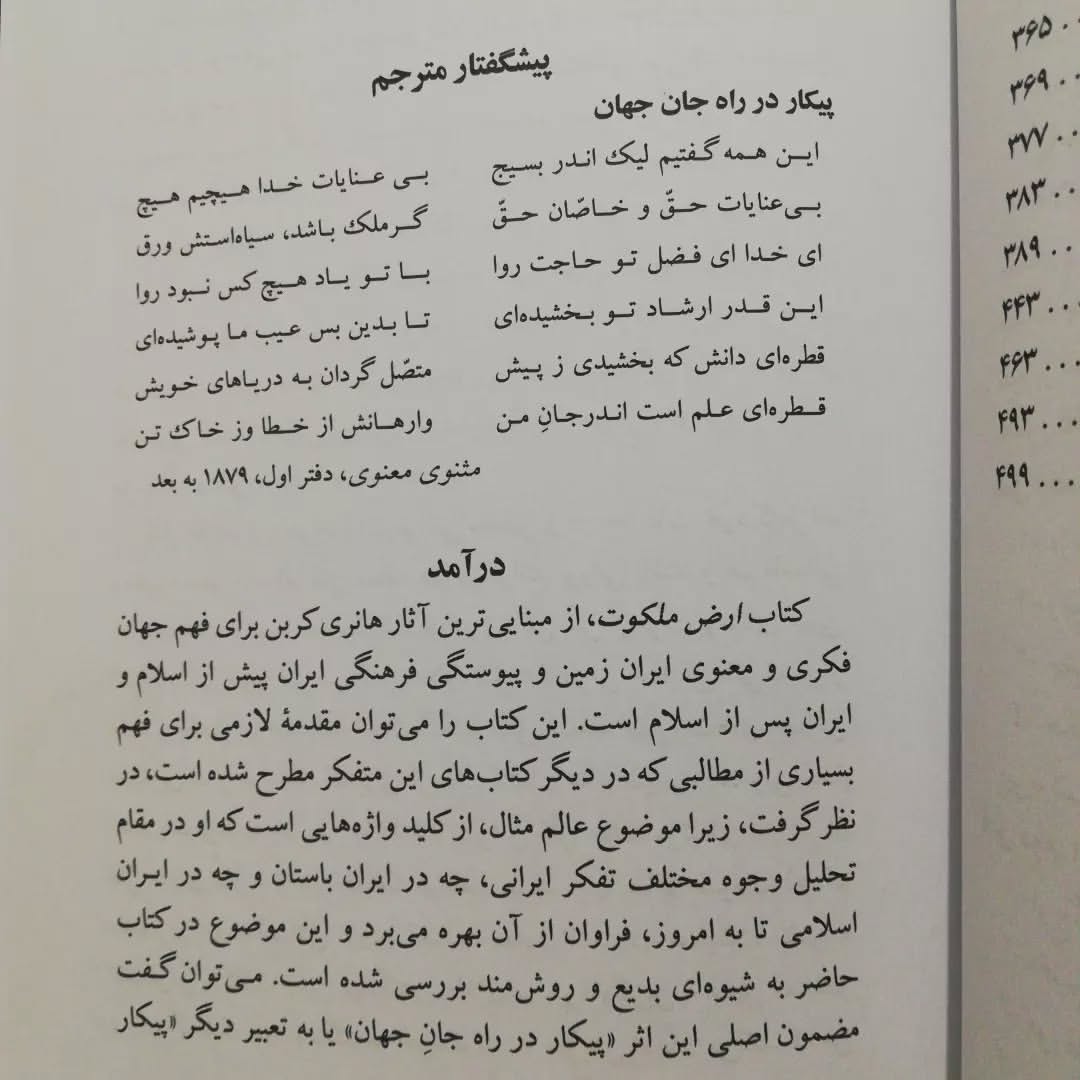 پیشگفتار مترجم
پیکار در راه جان جهان
ایـن همه گـفتیم لیک اندر بسیج بـی عـنایات خـدا هـیچیم هـیچ
بـی‌عنایات حـقّ و خـاصّان حـقّ گـر ملک باشد، سیاه‌استش ورق
ای خدا ای فـضل تو حـاجت روا بـا تو یـاد هـیچ کس نـبود روا
ایـن قـدر ارشـاد تـو بـخشیده‌ای تـا بـدین بس عـیب مـا پـوشیده‌ای
قطره‌ای دانش که بخشیدی ز پیش متصّل گردان بـه دریـاهای خـویش
قـطره‌ای عـلم است انـدرجانِ مـن وارهـانش از خـطا وز خـاک تـن
مثنوی معنوی، دفتر اول، ۱۸۷۹ به بعد
درآمد
کتاب ارض ملکوت، از مبنایی‌ترین آثار هانری کربن برای فهم جهان
فکری و معنوی ایران زمین و پیوستگی فرهنگی ایران پیش از اسلام و
ایران پس از اسلام است. این کتاب را می‌توان مقدمهٔ لازمی برای فهم
بسیاری از مطالبی که در دیگر کتاب‌های این متفکر مطرح شده است، در
نظر گرفت، زیرا موضوع عالم مثال، از کلید واژه‌هایی است که او در مقام
تحلیل وجوه مختلف تفکر ایرانی، چه در ایران باستان و چه در ایـران
اسلامی تا به امروز، فراوان از آن بهره می‌برد و این موضوع در کتاب
حاضر به شیوه‌ای بدیع و روش‌مند بررسی شده است. مـی‌توان گـفت
مضمون اصلی این اثر «پیکار در راه جانِ جهان» یا به تعبیر دیگر «پیکار
۳۶۵ . .
۳۶۹ . .
۳۷۷ . .
۳۸۳ . .
۳۸۹ . . .
۴۴۳ . . .
۴۶۳ . . .
۴۹۳ . . .
۴۹۹ . . .